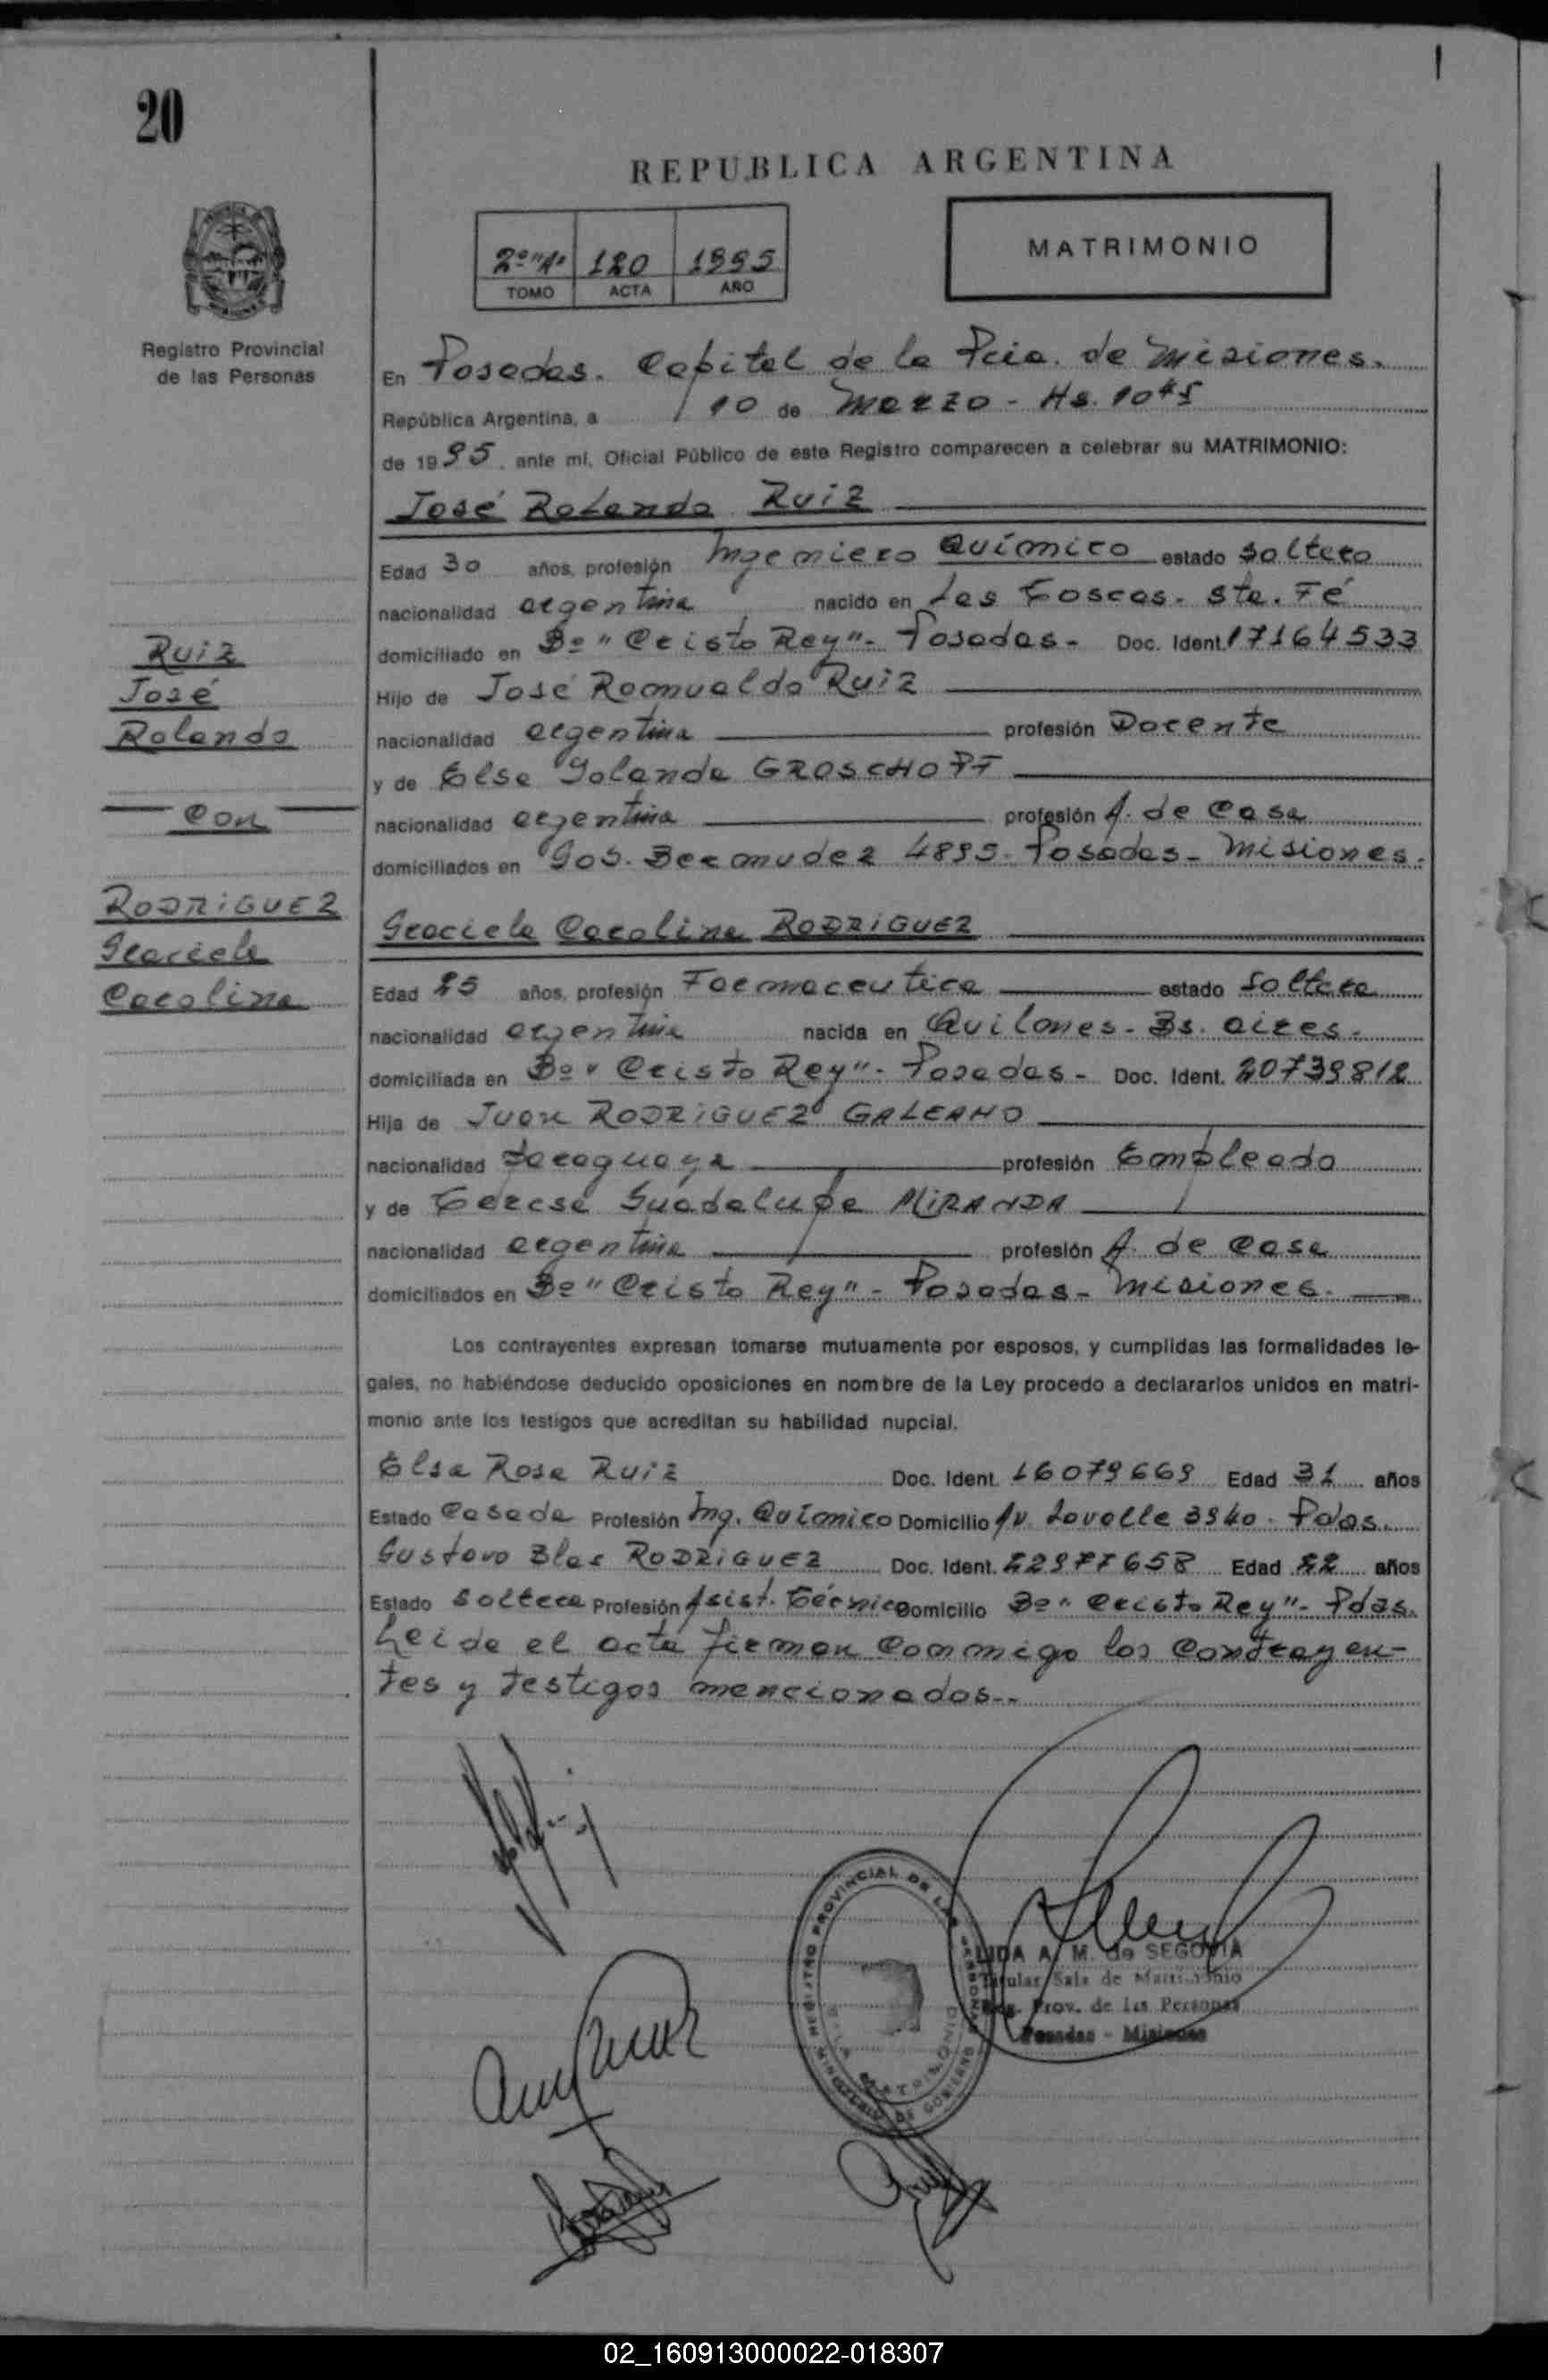 20
REPUBLICA ARGENTINA
2º "A" 120 1995
TOMO ACTA AÑO
MATRIMONIO
Registro Provincial
de las Personas
En Posadas. Capital de la Pcia. de Misiones.
República Argentina, a 10 de Marzo - Hs. 10⁴⁵
de 1995, ante mí, Oficial Público de este Registro comparecen a celebrar su MATRIMONIO:
José Rolando RUIZ
Edad 30 años, profesión Ingeniero Químico estado soltero
nacionalidad argentina nacido en Las Toscas - Sta. Fé
domiciliado en Bº "Cristo Rey" - Posadas - Doc. Ident. 17164533
Hijo de José Romualdo Ruiz
nacionalidad argentina profesión Docente
y de Elsa Yolanda GROSCHOPF
nacionalidad argentina profesión A. de Casa
domiciliados en Bermudez 4895 - Posadas - Misiones.
Ruiz
José
Rolando
con
RODRIGUEZ
Graciela
Carolina
Graciela Carolina RODRIGUEZ
Edad 25 años, profesión Farmaceutica estado soltera
nacionalidad argentina nacida en Quilmes - Bs. aires.
domiciliada en Bº "Cristo Rey" - Posadas - Doc. Ident. 20739812
Hija de Juan RODRIGUEZ GALEANO
nacionalidad paraguaya profesión Empleado
y de Teresa Guadalupe MIRANDA
nacionalidad argentina profesión A. de Casa
domiciliados en Bº "Cristo Rey" - Posadas - Misiones.
Los contrayentes expresan tomarse mutuamente por esposos, y cumplidas las formalidades le-
gales, no habiéndose deducido oposiciones en nombre de la Ley procedo a declararlos unidos en matri-
monio ante los testigos que acreditan su habilidad nupcial.
Elsa Rosa Ruiz Doc. Ident. 16079669 Edad 31 años
Estado Casada Profesión Ing. Químico Domicilio Av. Lavalle 3940 - Pdas.
Gustavo Blas RODRIGUEZ Doc. Ident. 22977658 Edad 22 años
Estado soltero Profesión Asist. Técnico Domicilio Bº "Cristo Rey" - Pdas.
Leida el acta firman conmigo los contrayen-
tes y testigos mencionados.-
REGISTRO PROVINCIAL DE LAS PERSONAS
MINISTERIO DE GOBIERNO
SALA MATRIMONIO
LIDA A. M. de SEGOVIA
Titular Sala de Matrimonio
Reg. Prov. de las Personas
Posadas - Misiones
02_160913000022-018307